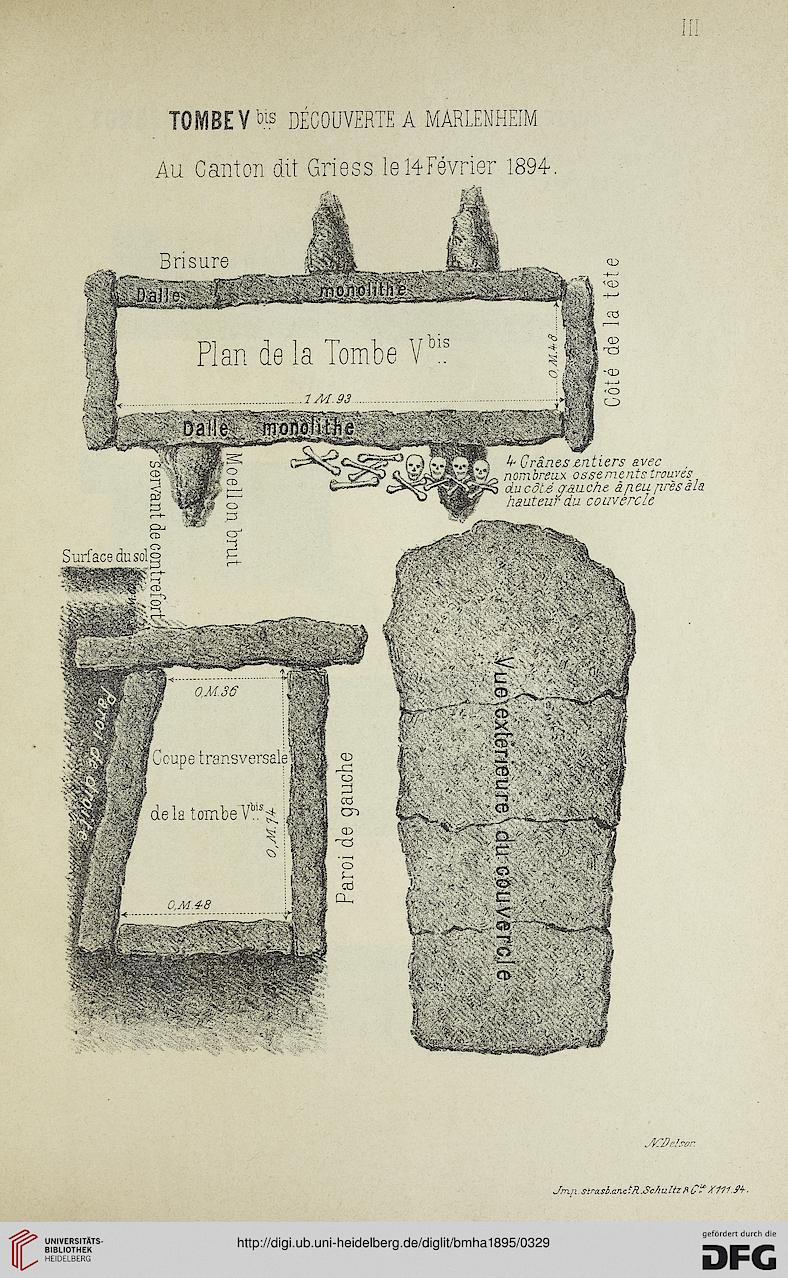 III
TOMBE V bis DÉCOUVERTE A MARLENHEIM
Au Canton dit Griess le 14 Février 1894.
Brisure
Dalle monolithe
Plan de la Tombe V bis
0,M.48
1 M. 93
Côté de la tête
Dalle monolithe
Moellon brut
Servant de contrefort
4 Crânes entiers avec
nombreux ossements trouvés
du côté gauche à peu près à la
hauteur du couvercle
Surface du sol
0,M.36
Paroi de droite
Coupe transversale
de la tombe V bis
0,M.74
0,M.48
Paroi de gauche
Vue extérieure du couvercle
N. Delsor.
Imp. strasb. anct R. Schultz & Cie
UNIVERSITÄTS-
BIBLIOTHEK
HEIDELBERG
http://digi.ub.uni-heidelberg.de/diglit/bmha1895/0329
gefördert durch die
DFG